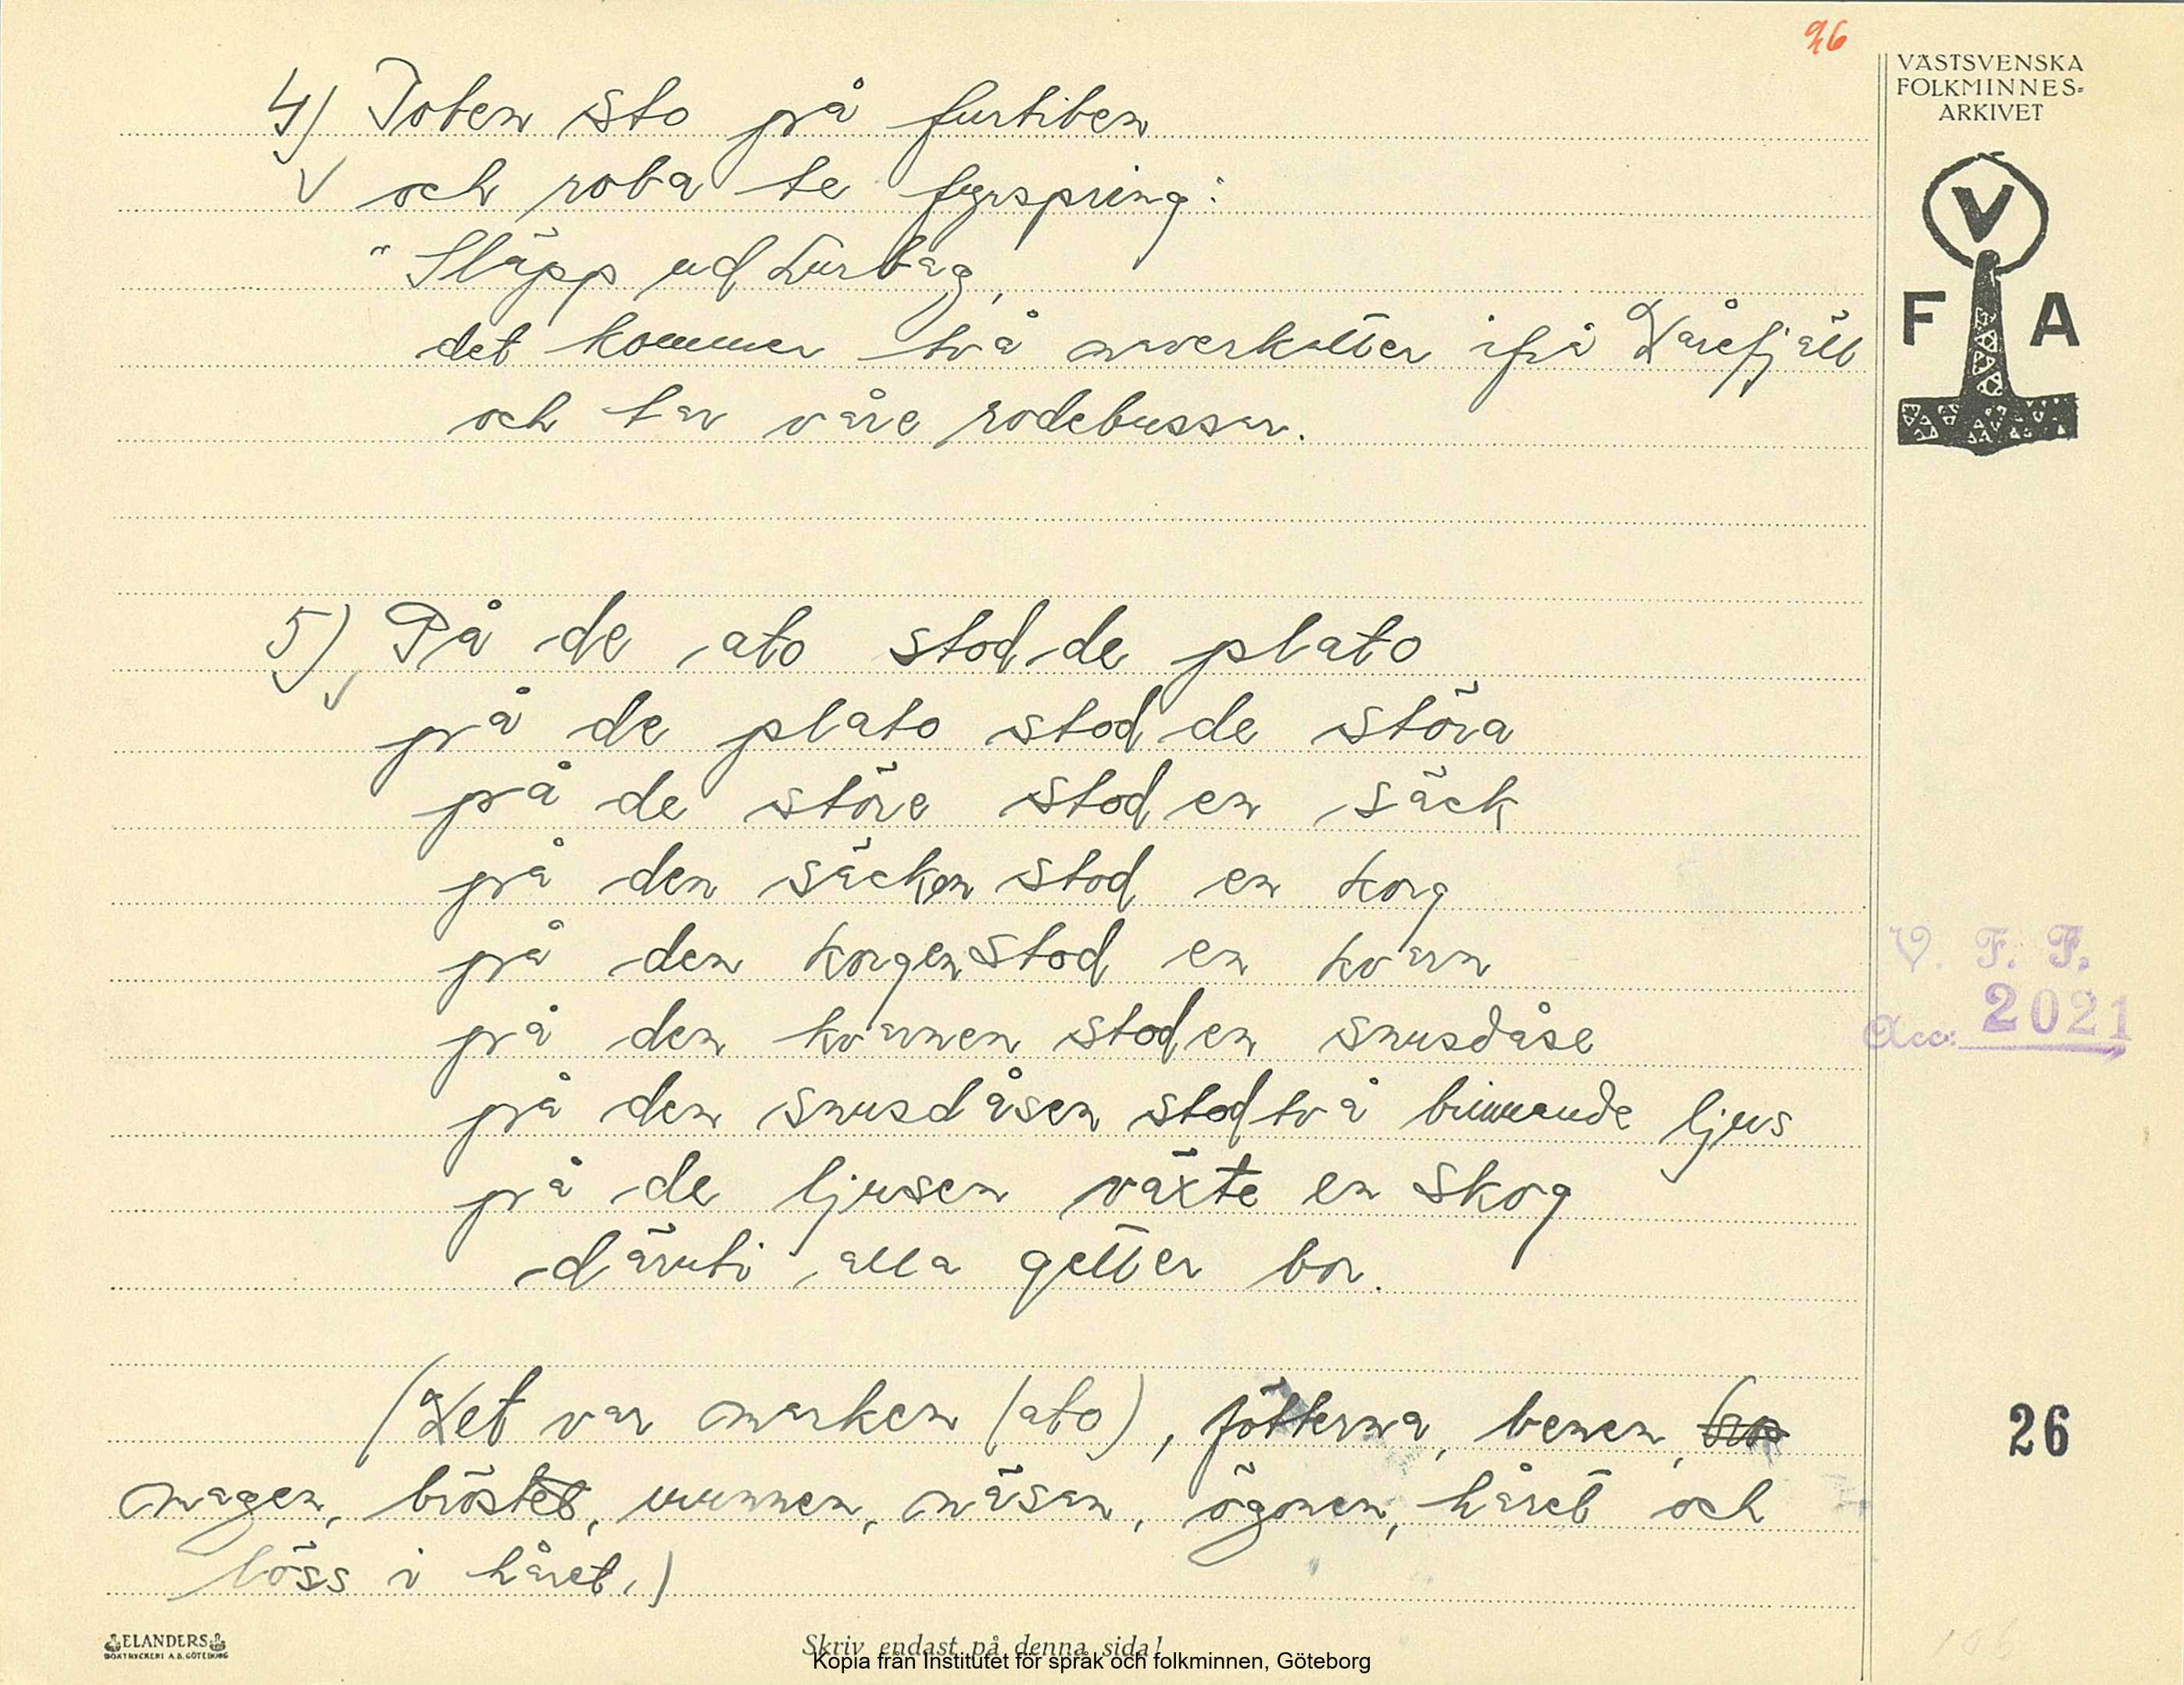 26
VÄSTSVENSKA
FOLKMINNES-
ARKIVET
V
F A
4) Toten sto på furtiben
V och roba te fyrspring:
" Släpp ud Lurbag,
det kommer två mverkatter ifrå Dårefjäll
och tar våre rodebussar.
5) På de ato stod de plato
på de plato stod de störa
på de störe stod en säck
på den säcken stod en korg
på den korgen stod en kvarn
på den kvarnen stod en snusdåse
på den snusdåsen stod två brinnande ljus
på de ljusen växte en skog
däruti alla getter bor.
V. F. F.
Acc. 2021
(Det var marken (ato), fötterna, benen,
magen, bröstet, munnen, näsan, ögonen, håret och
löss i håret.)
26
ELANDERS
BOKTRYCKERI A.B. GÖTEBORG
Skriv endast på denna sida!
Kopia från Institutet för språk och folkminnen, Göteborg